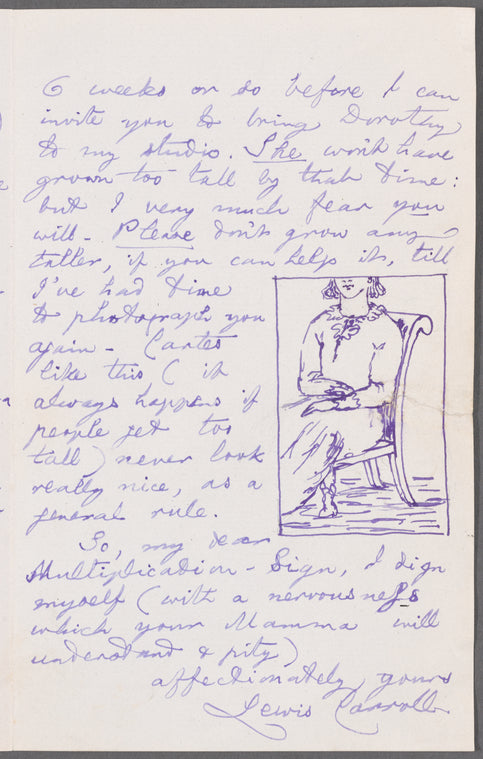 6 weeks or so before I can
invite you to bring Dorothy
to my studio. She won't have
grown too tall by that time:
but I very much fear you
will - Please don't grow any
taller, if you can help it, till
I've had time
to photograph you
again - Cartes
like this (it
always happens if
people get too
tall) never look
really nice, as a
general rule.
So, my dear
Multiplication-Sign, I sign
myself (with a nervousness
which your Mamma will
understand & pity)
affectionately yours
Lewis Carroll